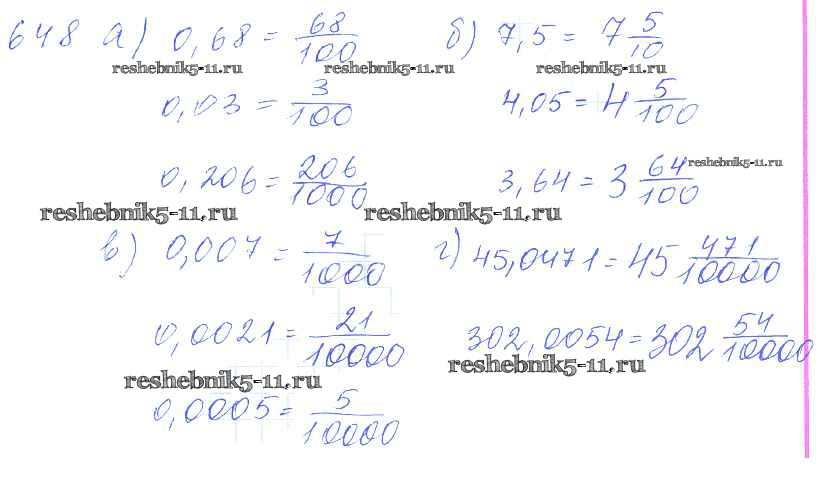 648 а) 0,68 = 68/100 б) 7,5 = 7 5/10
reshebnik5-11.ru reshebnik5-11.ru reshebnik5-11.ru
0,03 = 3/100 4,05 = 4 5/100
0,206 = 206/1000 3,64 = 3 64/100 reshebnik5-11.ru
reshebnik5-11.ru reshebnik5-11.ru
в) 0,007 = 7/1000 г) 45,0471 = 45 471/10000
0,0021 = 21/10000 302,0054 = 302 54/10000
reshebnik5-11.ru reshebnik5-11.ru
0,0005 = 5/10000